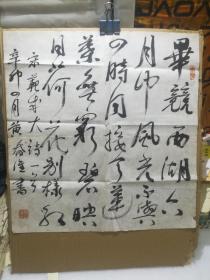 畢競西湖六
月中風光不與
四時同接天蓮
葉無窮碧映
日荷花別樣紅
宋范成大詩一首
辛卯月黄書